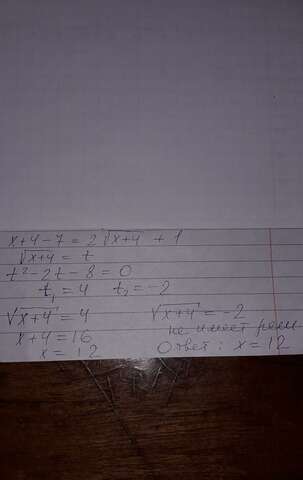 x+4-7 = 2√(x+4) + 1
√(x+4) = t
t²-2t-8=0
t₁=4 t₂=-2
√(x+4) = 4 √(x+4) = -2
x+4=16 не имеет реш.
x=12 Ответ: x=12